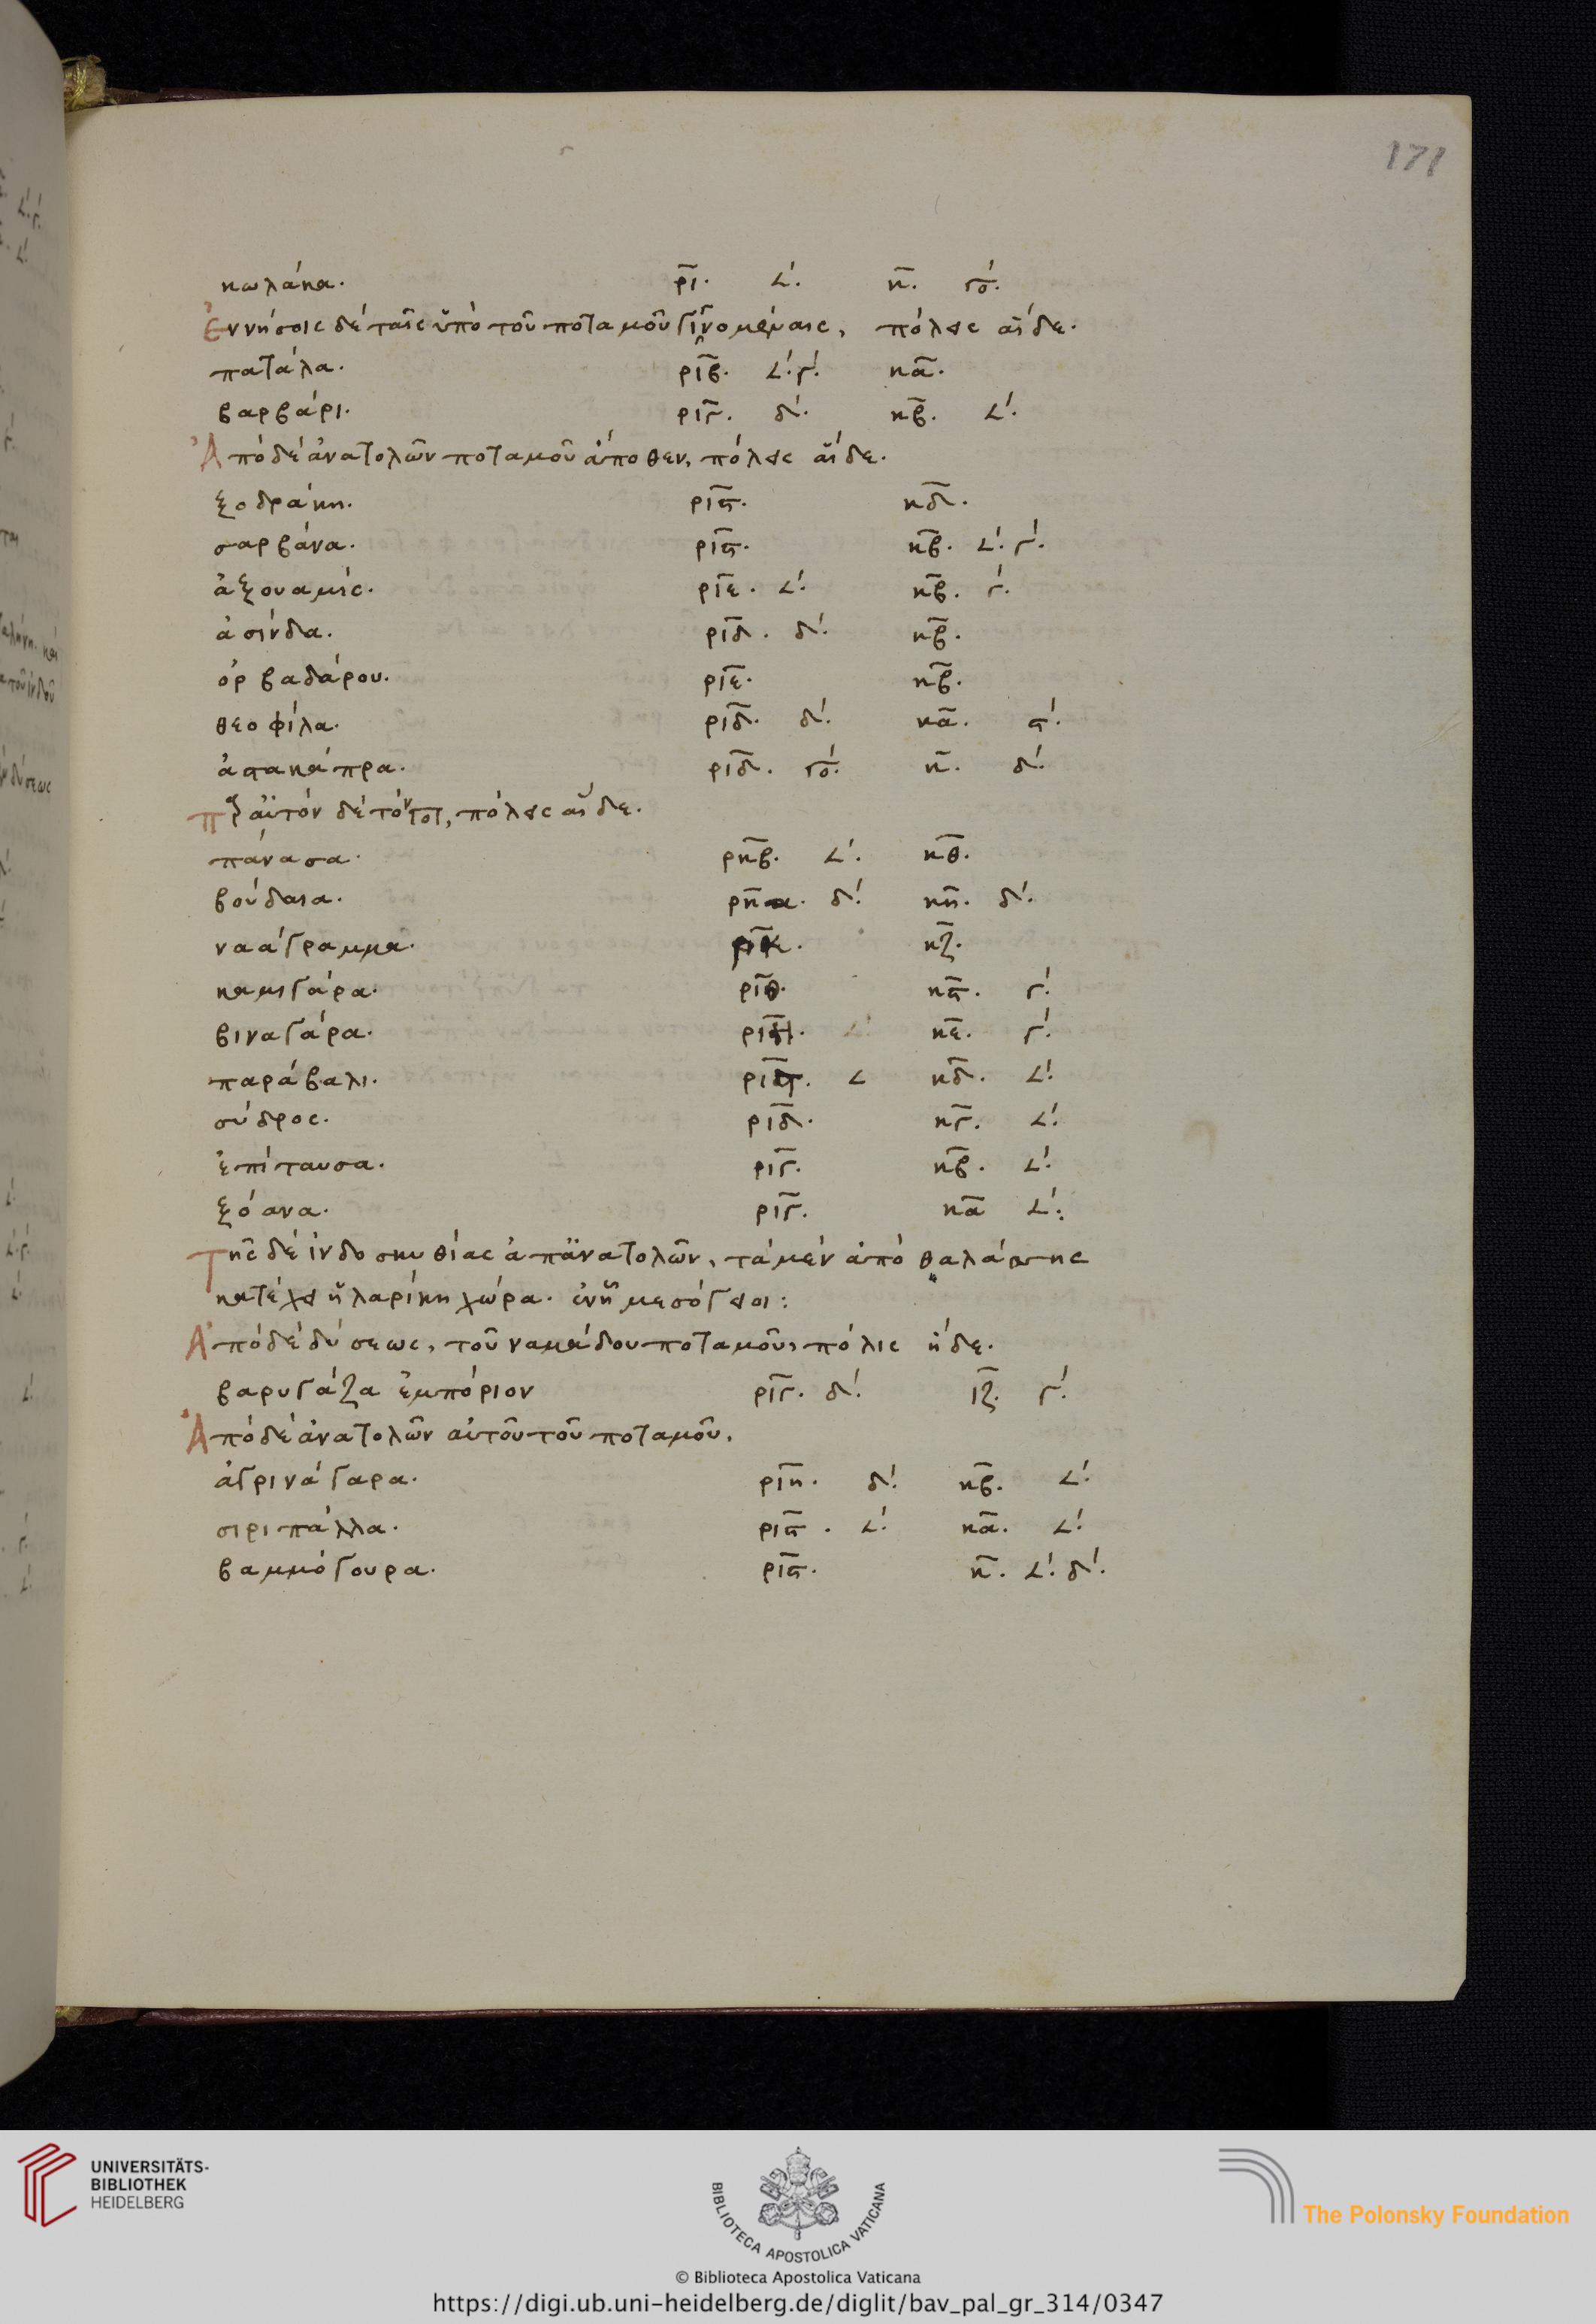 171
κωλάκα. ρῑ. 𐅵΄. κ̄. γο΄.
Ἐν νήσοις δὲ ταῖς ὑπὸ τοῦ ποταμοῦ γινομέναις, πόλεις αἵδε.
πατάλα. ριβ̄. 𐅵΄. γ΄. κᾱ.
βαρβάρι. ριγ̄. δ΄. κβ̄. 𐅵΄.
Ἀπὸ δὲ ἀνατολῶν ποταμοῦ ἄποθεν, πόλεις αἵδε.
ξοδράκη. ριϛ̄. κδ̄.
σαρβάνα. ριϛ̄. κβ̄. 𐅵΄. γ΄.
ἀξουαμίς. ριε̄. 𐅵΄. κβ̄. γ΄.
ἀσίνδα. ριδ̄. δ΄. κβ̄.
ὀρβαδάρου. ριε̄. κβ̄.
θεοφίλα. ριδ̄. δ΄. κᾱ. ϛ΄.
ἀστακάπρα. ριδ̄. γο΄. κ̄. δ΄.
αὐτὸν δὲ τὸν πόλεις αἵδε.
πάνασα. ρκβ̄. 𐅵΄. κθ̄.
βούδαια. ρκᾱ. δ΄. κη̄. δ΄.
ναάγραμμα. ρκ̄. κζ̄.
καμιγάρα. ριθ̄. κϛ̄. γ΄.
βιναγάρα. ριη̄. κε̄. γ΄.
παράβαλι. 𐅵 κδ̄. 𐅵΄.
σύδρος. ριδ̄. κγ̄. 𐅵΄.
ἐπίταυσα. ριγ̄. κβ̄. 𐅵΄.
ξόανα. ριγ̄. κᾱ 𐅵΄:
Τῆς δὲ ἰνδοσκυθίας ἀπ' ἀνατολῶν, τὰ μὲν ἀπὸ θαλάσσης
κατέχει ἡ λαρίκη χώρα. ἐν ᾗ μεσόγειοι:
Ἀπὸ δὲ δύσεως, τοῦ ναμάδου ποταμοῦ, πόλις ἥδε.
βαρυγάζα ἐμπόριον ριγ̄. δ΄. ιζ̄. γ΄.
Ἀπὸ δὲ ἀνατολῶν αὐτοῦ τοῦ ποταμοῦ.
ἀγρινάγαρα. ριη̄. δ΄. κβ̄. 𐅵΄.
σιριπάλλα. ριϛ̄. 𐅵΄. κᾱ. 𐅵΄.
βαμμόγουρα. ριϛ̄. κ̄. 𐅵΄. δ΄.
UNIVERSITÄTS-
BIBLIOTHEK
HEIDELBERG
BIBLIOTECA APOSTOLICA VATICANA
© Biblioteca Apostolica Vaticana
The Polonsky Foundation
https://digi.ub.uni-heidelberg.de/diglit/bav_pal_gr_314/0347